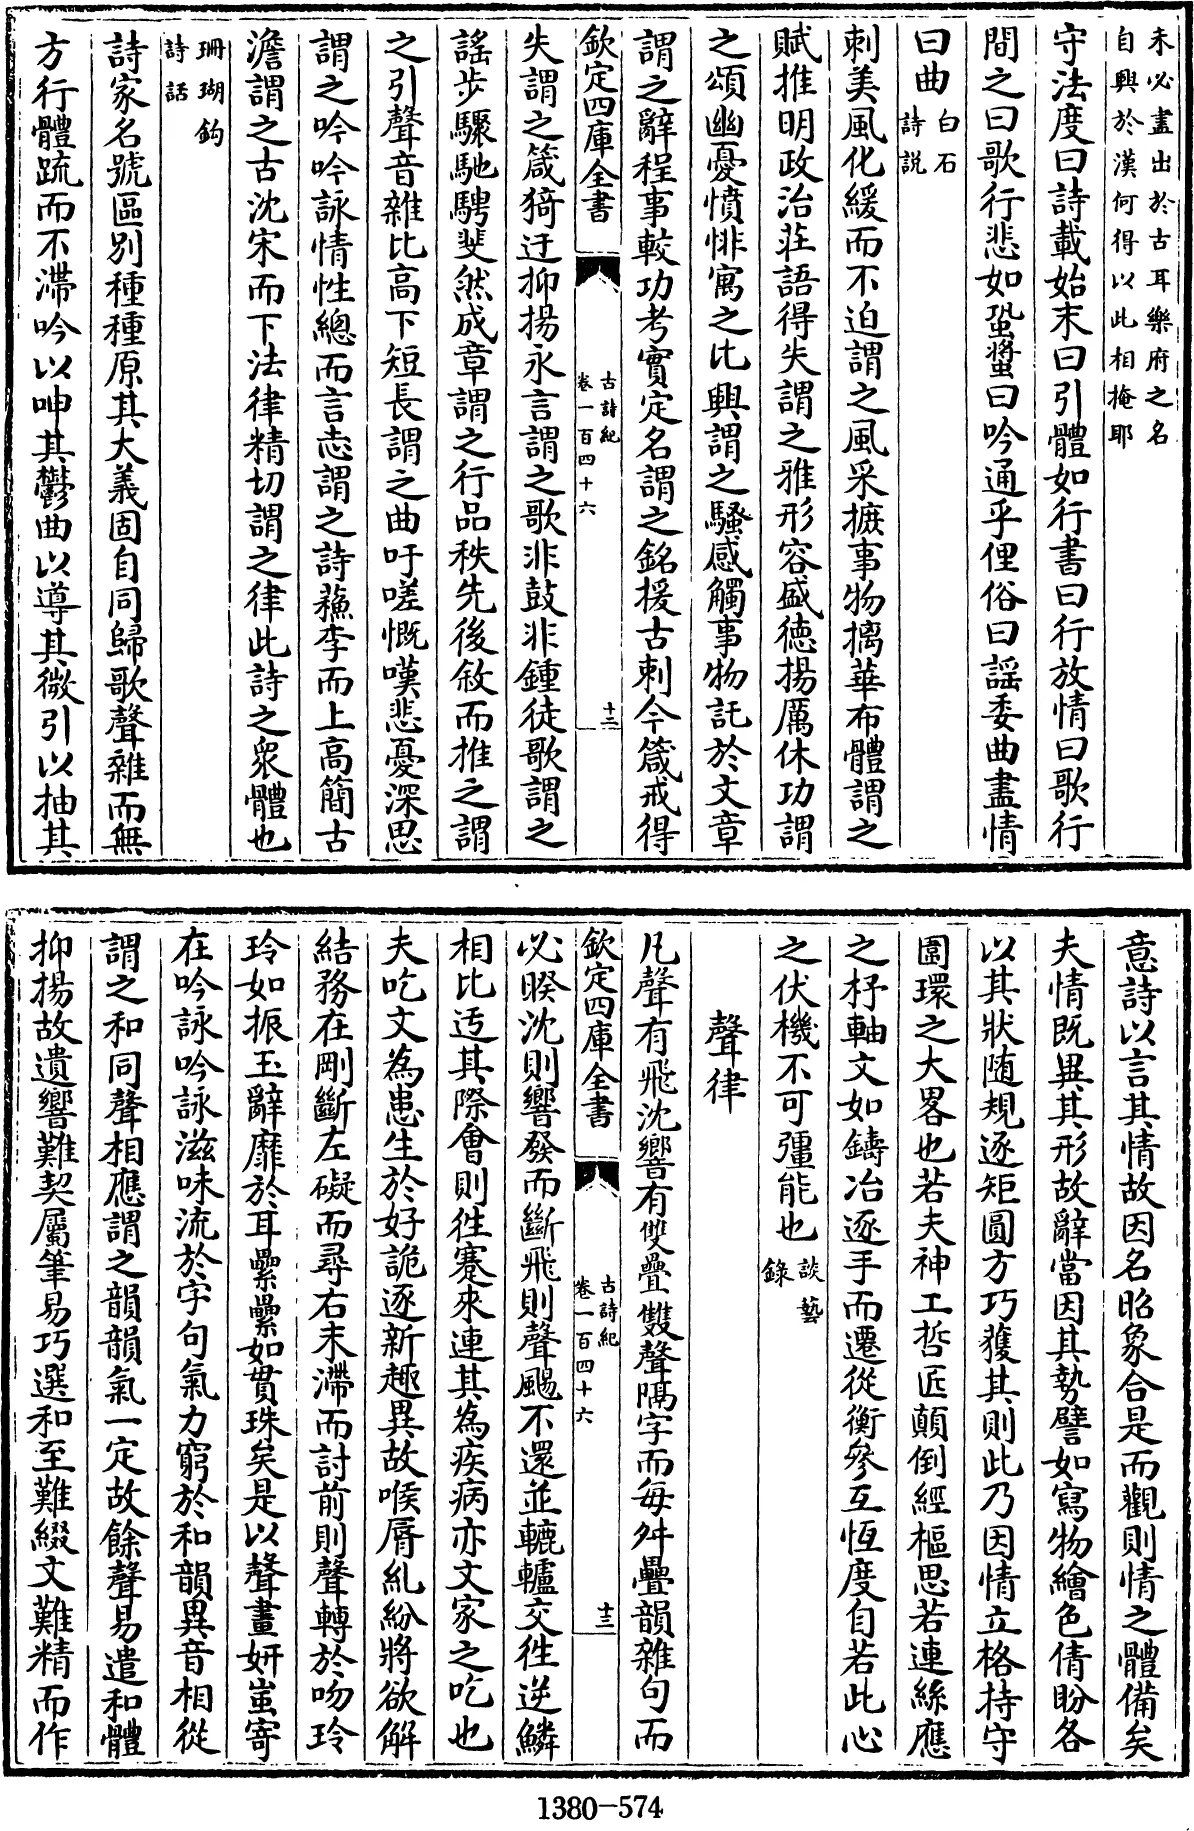 未必盡出於古耳樂府之名
自興於漢何得以此相掩耶
守法度曰詩載始末曰引體如行書曰行放情曰歌行
間之曰歌行悲如蛩螿曰吟通乎俚俗曰謡委曲盡情
曰曲白石
詩説
刺美風化緩而不迫謂之風采摭事物摛華布體謂之
賦推明政治莊語得失謂之雅形容盛徳揚厲休功謂
之頌幽憂憤悱寓之比興謂之騷感觸事物託於文章
謂之辭程事較功考實定名謂之銘援古刺今箴戒得
欽定四庫全書
古詩紀
卷一百四十六
十二
失謂之箴猗迂抑揚永言謂之歌非鼓非鍾徒歌謂之
謡步驟馳騁斐然成章謂之行品秩先後敘而推之謂
之引聲音雜比高下短長謂之曲吁嗟慨嘆悲憂深思
謂之吟吟詠情性總而言志謂之詩蘓李而上高簡古
澹謂之古沈宋而下法律精切謂之律此詩之衆體也
珊瑚鈎
詩話
詩家名號區別種種原其大義固自同歸歌聲雜而無
方行體疏而不滯吟以呻其鬱曲以導其微引以抽其
意詩以言其情故因名昭象合是而觀則情之體備矣
夫情既異其形故辭當因其勢譬如寫物繪色倩盼各
以其狀随規逐矩圓方巧獲其則此乃因情立格持守
圍環之大畧也若夫神工哲匠顛倒經樞思若連絲應
之杼軸文如鑄冶逐手而遷從衡參互恆度自若此心
之伏機不可彊能也談藝
錄
聲律
凡聲有飛沈響有雙疊雙聲隔字而每舛疊韻雜句而
欽定四庫全書
古詩紀
卷一百四十六
十三
必睽沈則響發而斷飛則聲颺不還並轆轤交徃逆鱗
相比迃其際會則徃蹇來連其為疾病亦文家之吃也
夫吃文為患生於好詭逐新趣異故喉脣糺紛將欲解
結務在剛斷左礙而尋右末滯而討前則聲轉於吻玲
玲如振玉辭靡於耳纍纍如貫珠矣是以聲畫妍蚩寄
在吟詠吟詠滋味流於字句氣力窮於和韻異音相從
謂之和同聲相應謂之韻韻氣一定故餘聲易遣和體
抑揚故遺響難契屬筆易巧選和至難綴文難精而作
1380-574